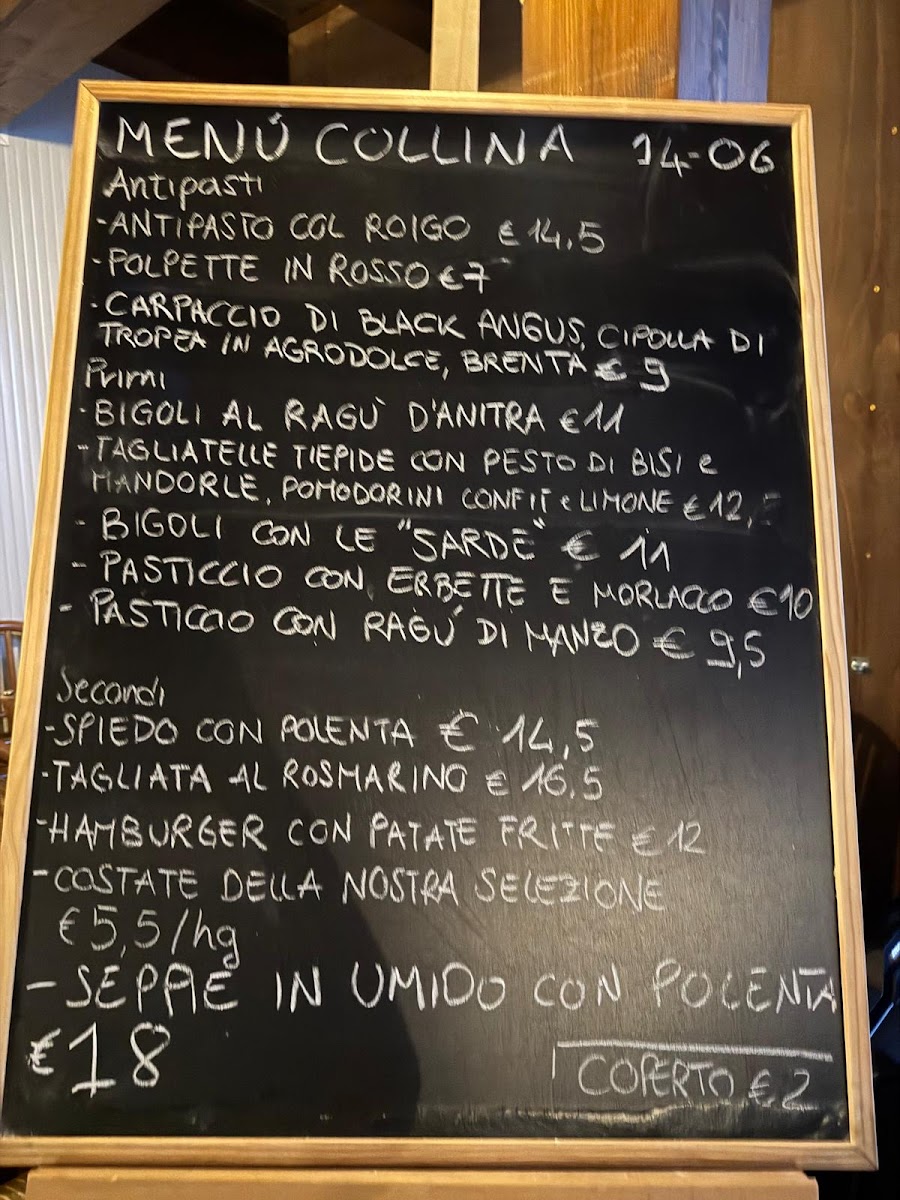 MENÚ COLLINA 14-06
Antipasti
-ANTIPASTO COL ROIGO €14,5
-POLPETTE IN ROSSO €7
-CARPACCIO DI BLACK ANGUS, CIPOLLA DI
TROPEA IN AGRODOLCE, BRENTA € 9
Primi
-BIGOLI AL RAGÙ D'ANITRA €11
-TAGLIATELLE TIEPIDE CON PESTO DI BISI e
MANDORLE, POMODORINI CONFIT e LIMONE €12,5
- BIGOLI CON LE "SARDE" € 11
- PASTICCIO CON ERBETTE E MORLACCO €10
- PASTICCIO CON RAGÚ DI MANZO € 9,5
Secondi
-SPIEDO CON POLENTA € 14,5
-TAGLIATA AL ROSMARINO € 16,5
-HAMBURGER CON PATATE FRITTE €12
-COSTATE DELLA NOSTRA SELEZIONE
€5,5/hg
- SEPPIE IN UMIDO CON POLENTA
€18
COPERTO €2